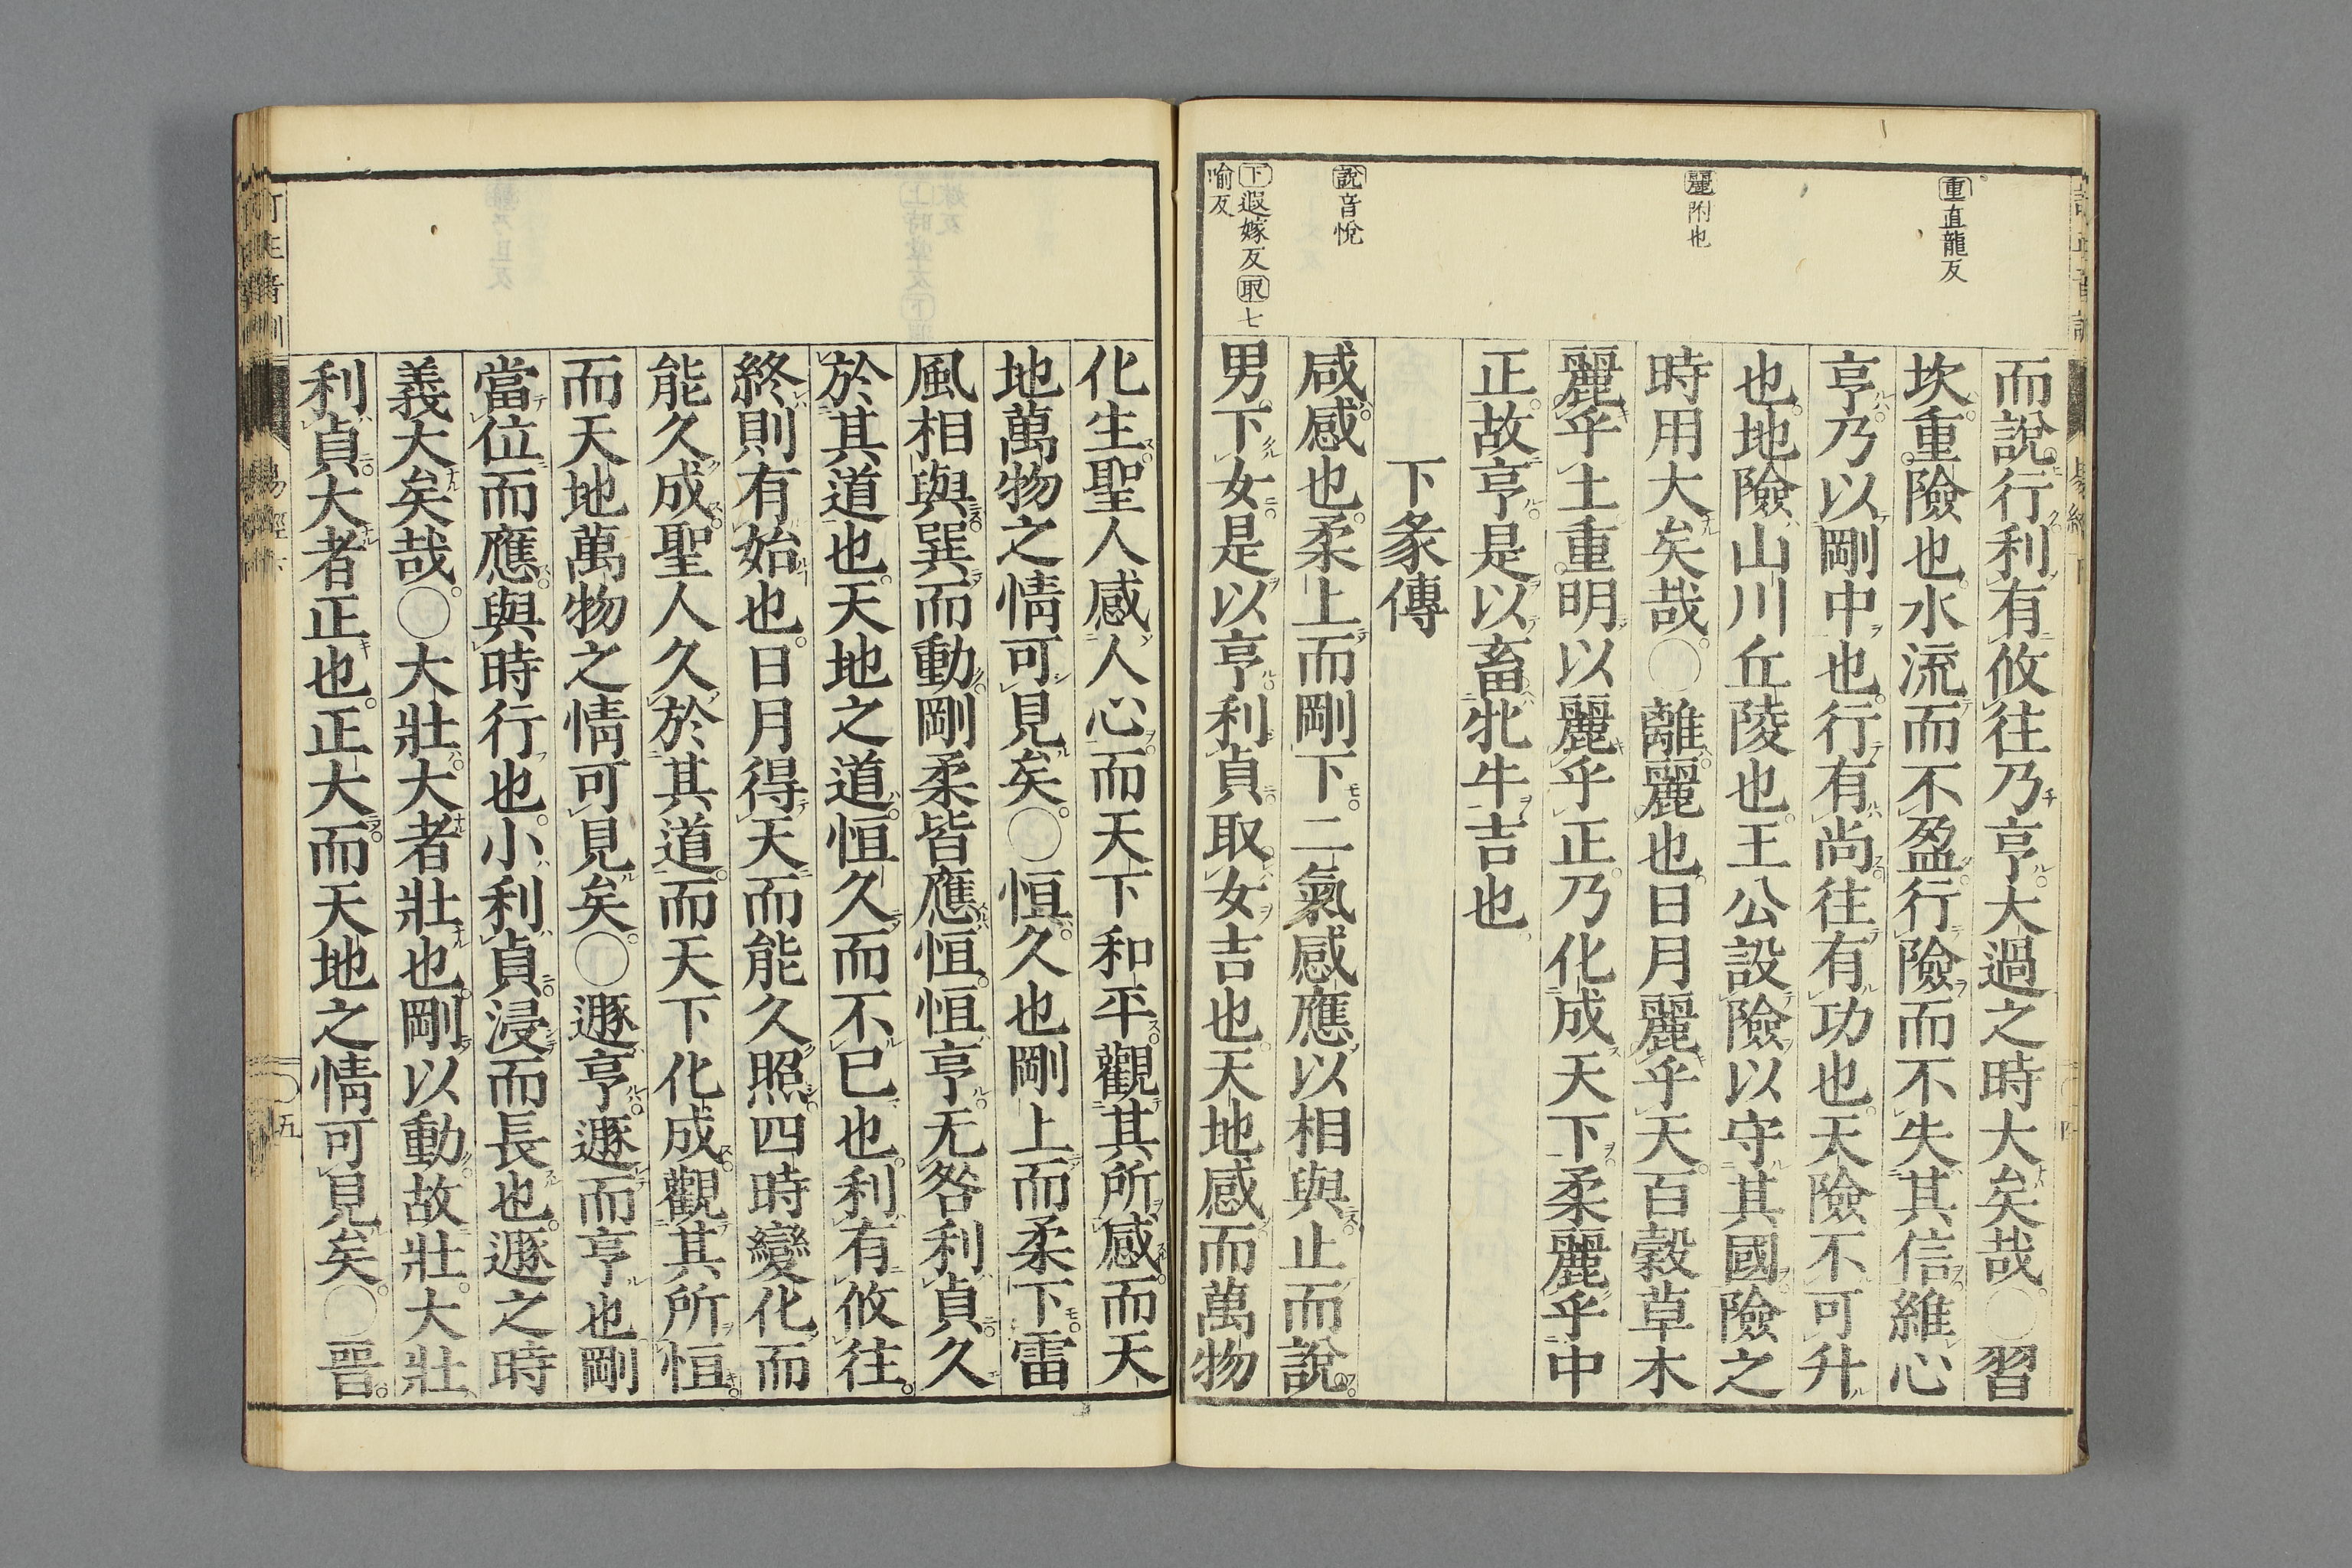 重直龍反
麗附也
說音悅
下遐嫁反取七
喻反
而說行利有攸往乃亨大過之時大矣哉○習
坎重險也水流而不盈行險而不失其信維心
亨乃以剛中也行有尚往有功也天險不可升
也地險山川丘陵也王公設險以守其國險之
時用大矣哉○離麗也日月麗乎天百穀草木
麗乎土重明以麗乎正乃化成天下柔麗乎中
正故亨是以畜牝牛吉也
下彖傳
咸感也柔上而剛下二氣感應以相與止而說
男下女是以亨利貞取女吉也天地感而萬物
化生聖人感人心而天下和平觀其所感而天
地萬物之情可見矣○恒久也剛上而柔下雷
風相與巽而動剛柔皆應恒恒亨无咎利貞久
於其道也天地之道恒久而不已也利有攸往
終則有始也日月得天而能久照四時變化而
能久成聖人久於其道而天下化成觀其所恒
而天地萬物之情可見矣○遯亨遯而亨也剛
當位而應與時行也小利貞浸而長也遯之時
義大矣哉○大壯大者壯也剛以動故壯大壯
利貞大者正也正大而天地之情可見矣○晉
五